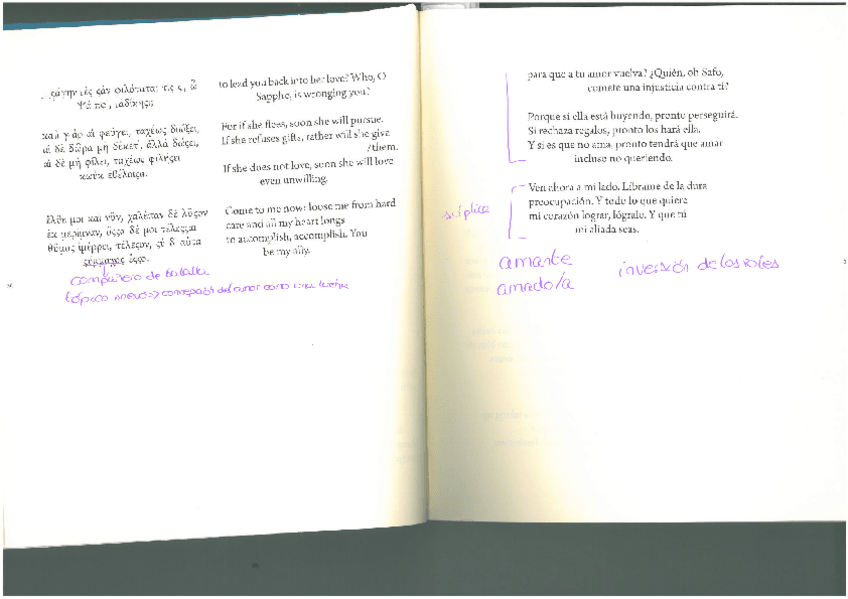 to lead you back into her love? Who, O
Sappho, is wronging you?
καὶ γὰρ αἰ φεύγει, ταχέως διώξει,
αἰ δὲ δῶρα μὴ δέκετ', ἀλλὰ δώσει,
αἰ δὲ μὴ φίλει, ταχέως φιλήσει
κωὐκ ἐθέλοισα.
For if she flees, soon she will pursue.
If she refuses gifts, rather will she give
/them.
If she does not love, soon she will love
even unwilling.
ἔλθε μοι καὶ νῦν, χαλέπαν δὲ λῦσον
ἐκ μερίμναν, ὄσσα δέ μοι τέλεσσαι
θῦμος ἰμέρρει, τέλεσον, σὺ δ' αὔτα
σύμμαχος ἔσσο.
Come to me now: loose me from hard
care and all my heart longs
to accomplish, accomplish. You
be my ally.
compañero de batalla
tópico nuevo => concepción del amor como una lucha
para que a tu amor vuelva? ¿Quién, oh Safo,
comete una injusticia contra ti?
Porque si ella está huyendo, pronto perseguirá.
Si rechaza regalos, pronto los hará ella.
Y si es que no ama, pronto tendrá que amar
incluso no queriendo.
Ven ahora a mi lado. Líbrame de la dura
preocupación. Y todo lo que quiera
mi corazón lograr, lógralo. Y que tú
mi aliada seas.
súplica
amante
amado/a
inversión de los roles